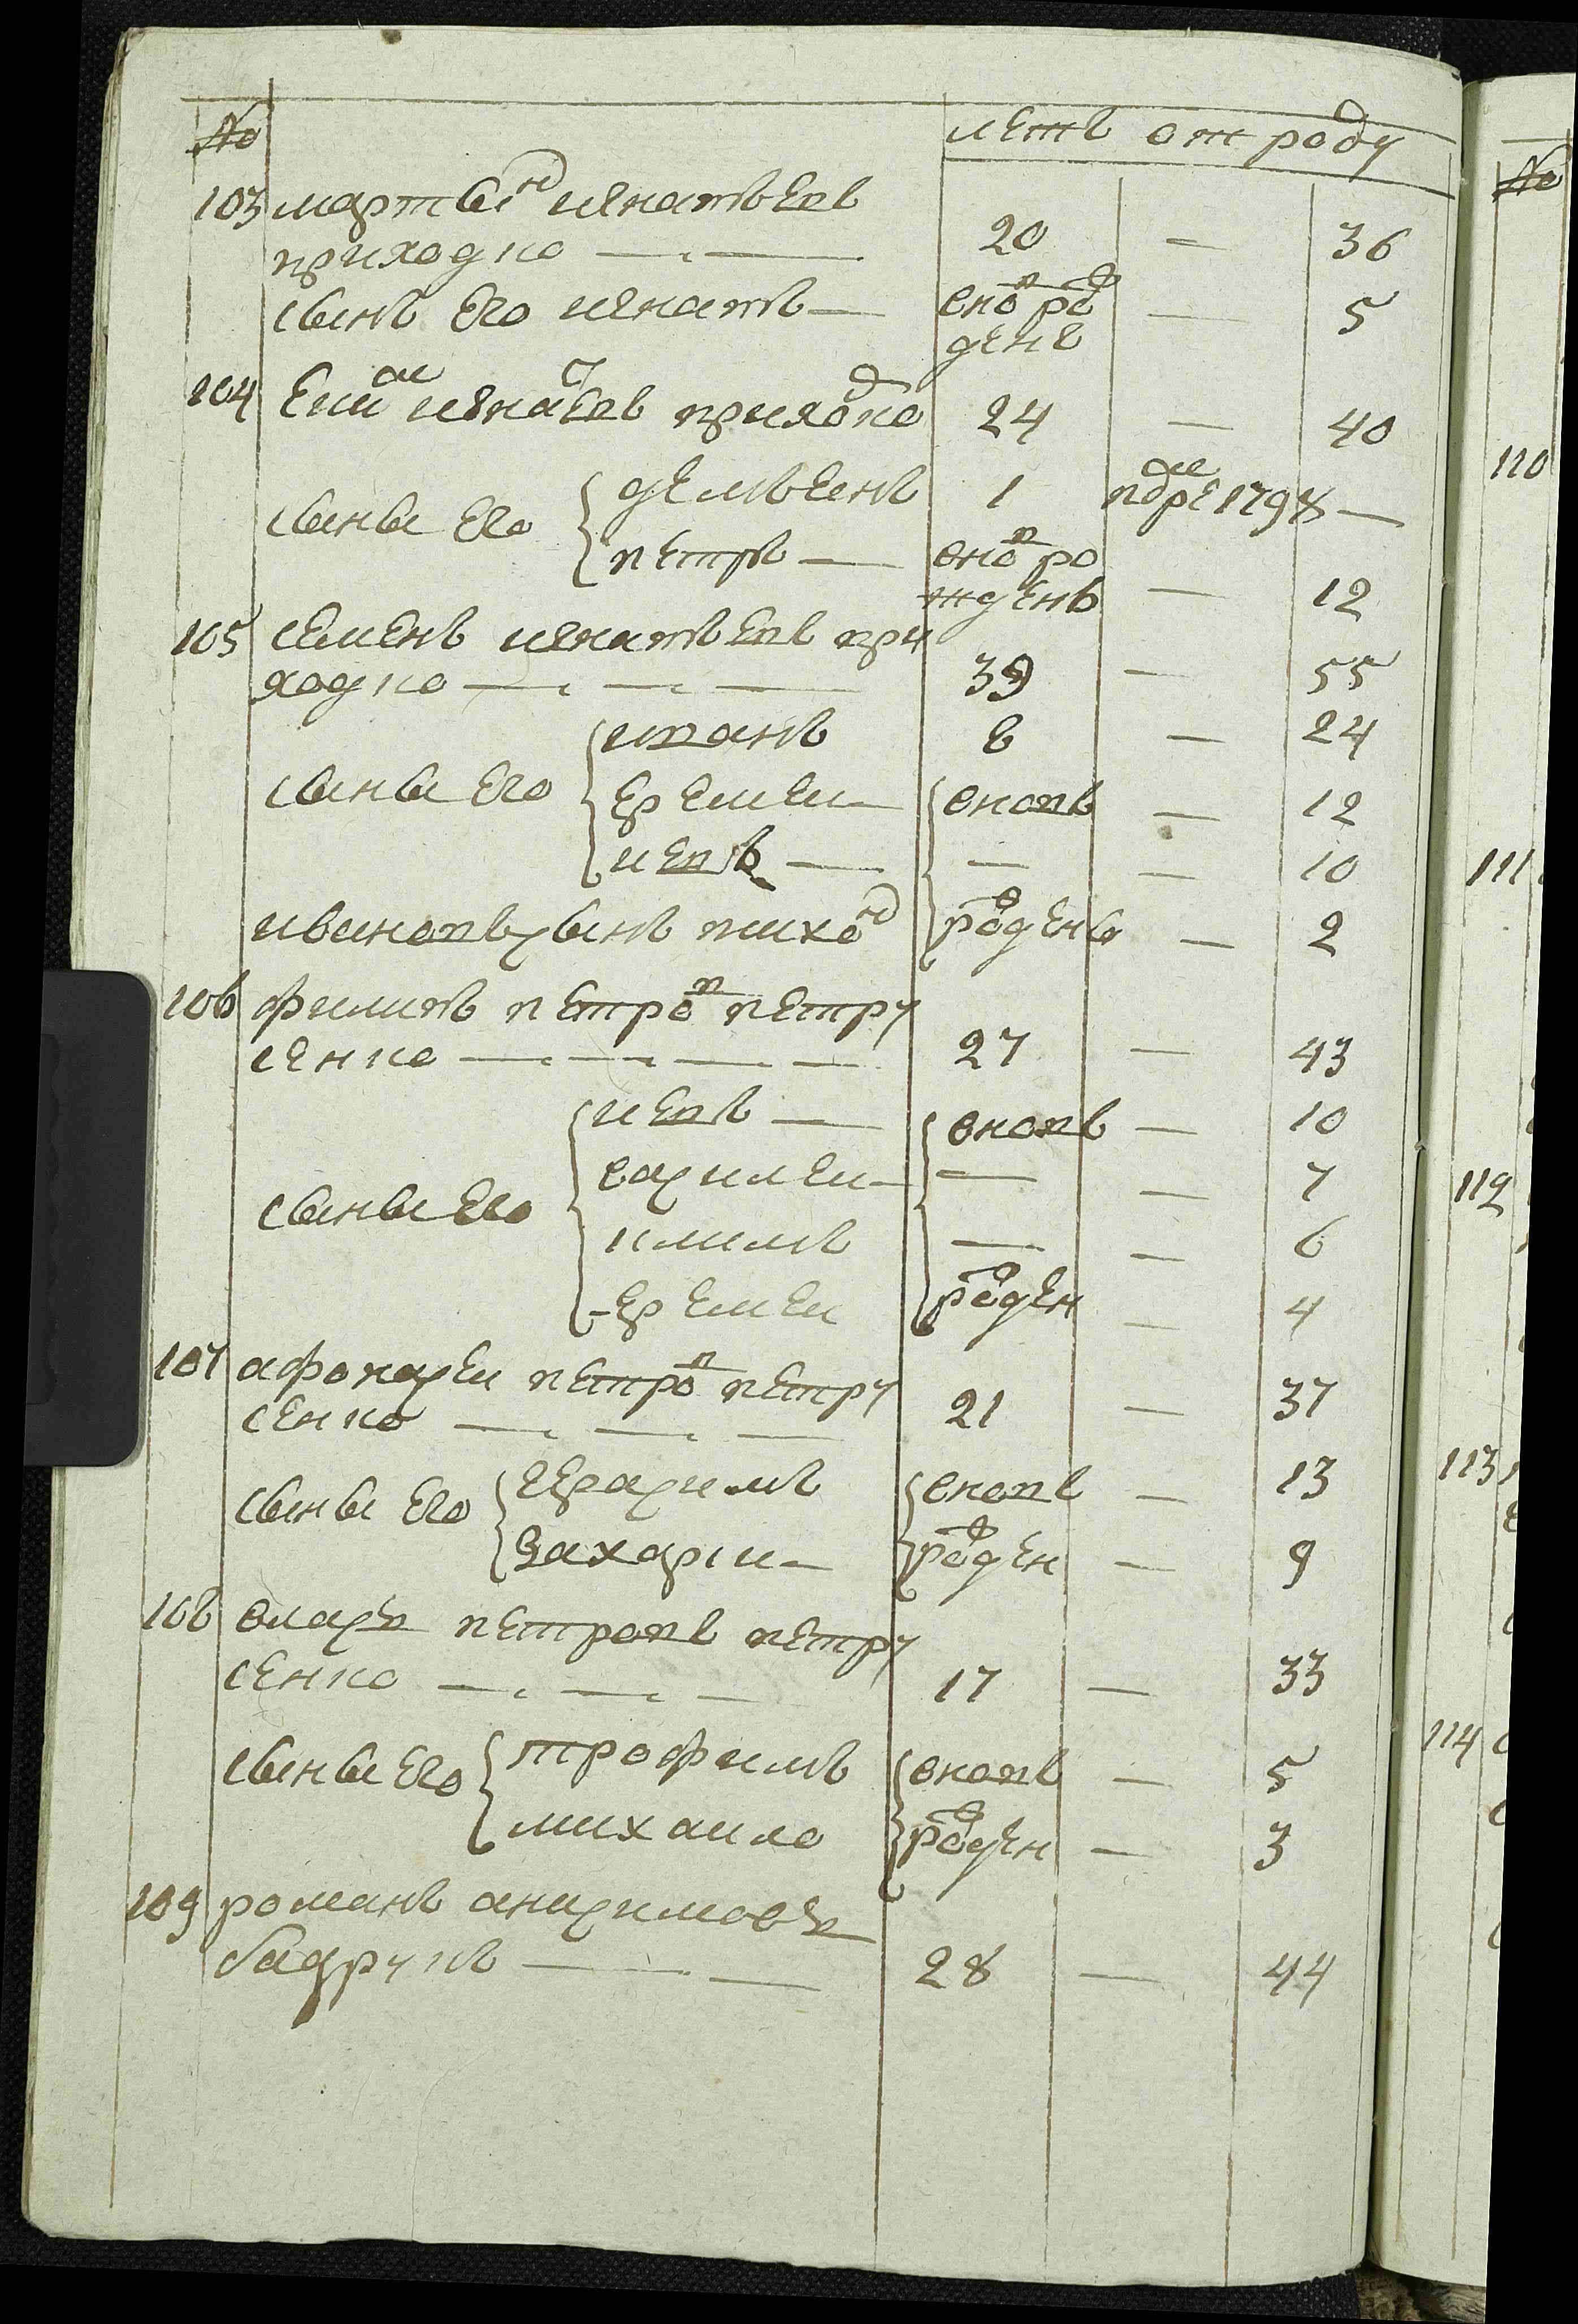 № летъ от роду
103 мартын игнатьевъ
приходко — — 20 — 36
сынъ его игнатъ — вновь рож — 5
денъ
104 еким игнатевъ приходко 24 — 40
сыны его демьенъ 1 помре 1798 —
петръ — вновь ро
жденъ — 12
105 семенъ игнатьевъ при
ходко — — — 39 — 55
иванъ 8 — 24
сыны его еремеи — вновь — 12
иевъ — — — 10
ивановъ сынъ тихон рождены — 2
106 филипъ петров петру
сенко — — — — 27 — 43
иевъ — вновь — 10
василеи — — — 7
сыны его климъ — — 6
еремеи рожден — 4
107 афонасеи петров петру
сенко — — — 21 — 37
сыны его герасимъ вновь — 13
захарии — рожден — 9
108 власъ петровъ петру
сенко — — — 17 — 33
сыны его трофимъ вновь — 5
михаило рожден — 3
109 романъ анисимовъ
— — 28 — 44
№
110
111
112
113
114